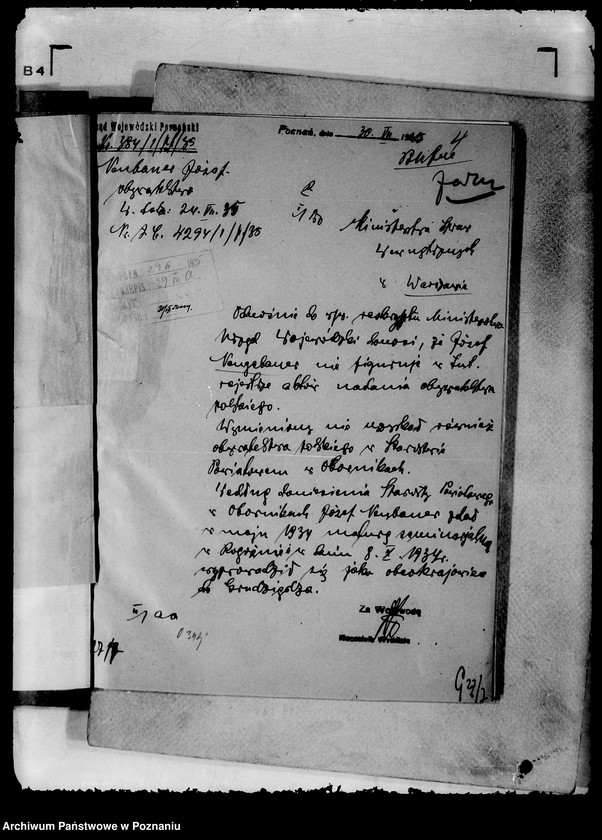 B4
Urząd Wojewódzki Poznański
Nr. 384/1/A/35
Poznań, dnia 30. VII. 1935
4
Neubauer Józef
obywatelstwo
24. VII. 35
Nr. 4294/1/A/35
Ministerstwo Spraw
Wewnętrznych
w Warszawie
Odnośnie do reskryptu Ministerstwa
Urząd Wojewódzki donosi, że Józef
Neugebauer nie figuruje w tut.
rejestrze aktów nadania obywatelstwa
polskiego.
Wymieniony nie uzyskał również
obywatelstwa polskiego w Starostwie
Powiatowem w Obornikach.
Według doniesienia Starosty Powiatowego
w Obornikach Józef Neubauer zdał
w maju 1934 maturę seminarjalną
w Rogoźnie i w dniu 8. X. 1934 r.
wyprowadził się jako obcokrajowiec
do Grudziądza.
Za Wojewodę
Naczelnik Wydziału
27/7
G 27/7
Archiwum Państwowe w Poznaniu